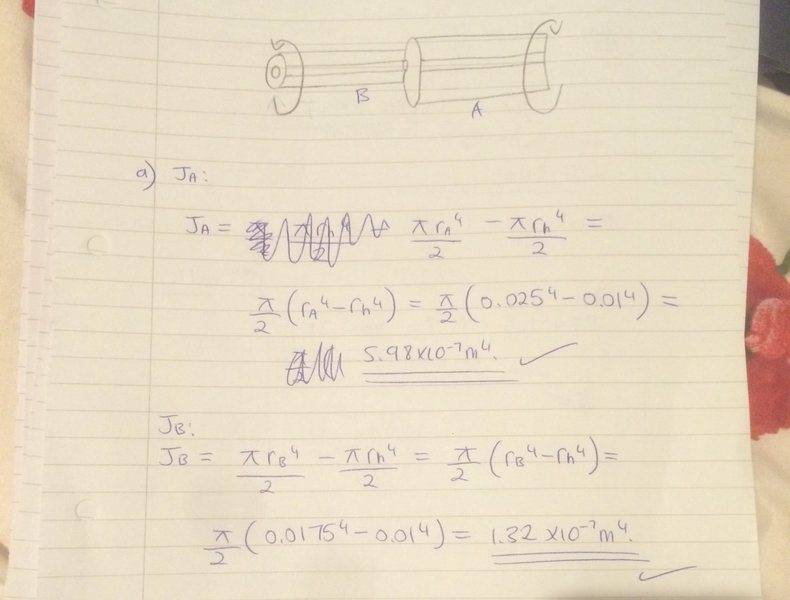 B
A
a) JA:
JA = πrA⁴/2 − πrh⁴/2 =
π/2 (rA⁴−rh⁴) = π/2 (0.025⁴−0.01⁴) =
5.98×10⁻⁷m⁴.
JB:
JB = πrB⁴/2 − πrh⁴/2 = π/2 (rB⁴−rh⁴) =
π/2 (0.0175⁴−0.01⁴) = 1.32×10⁻⁷m⁴.